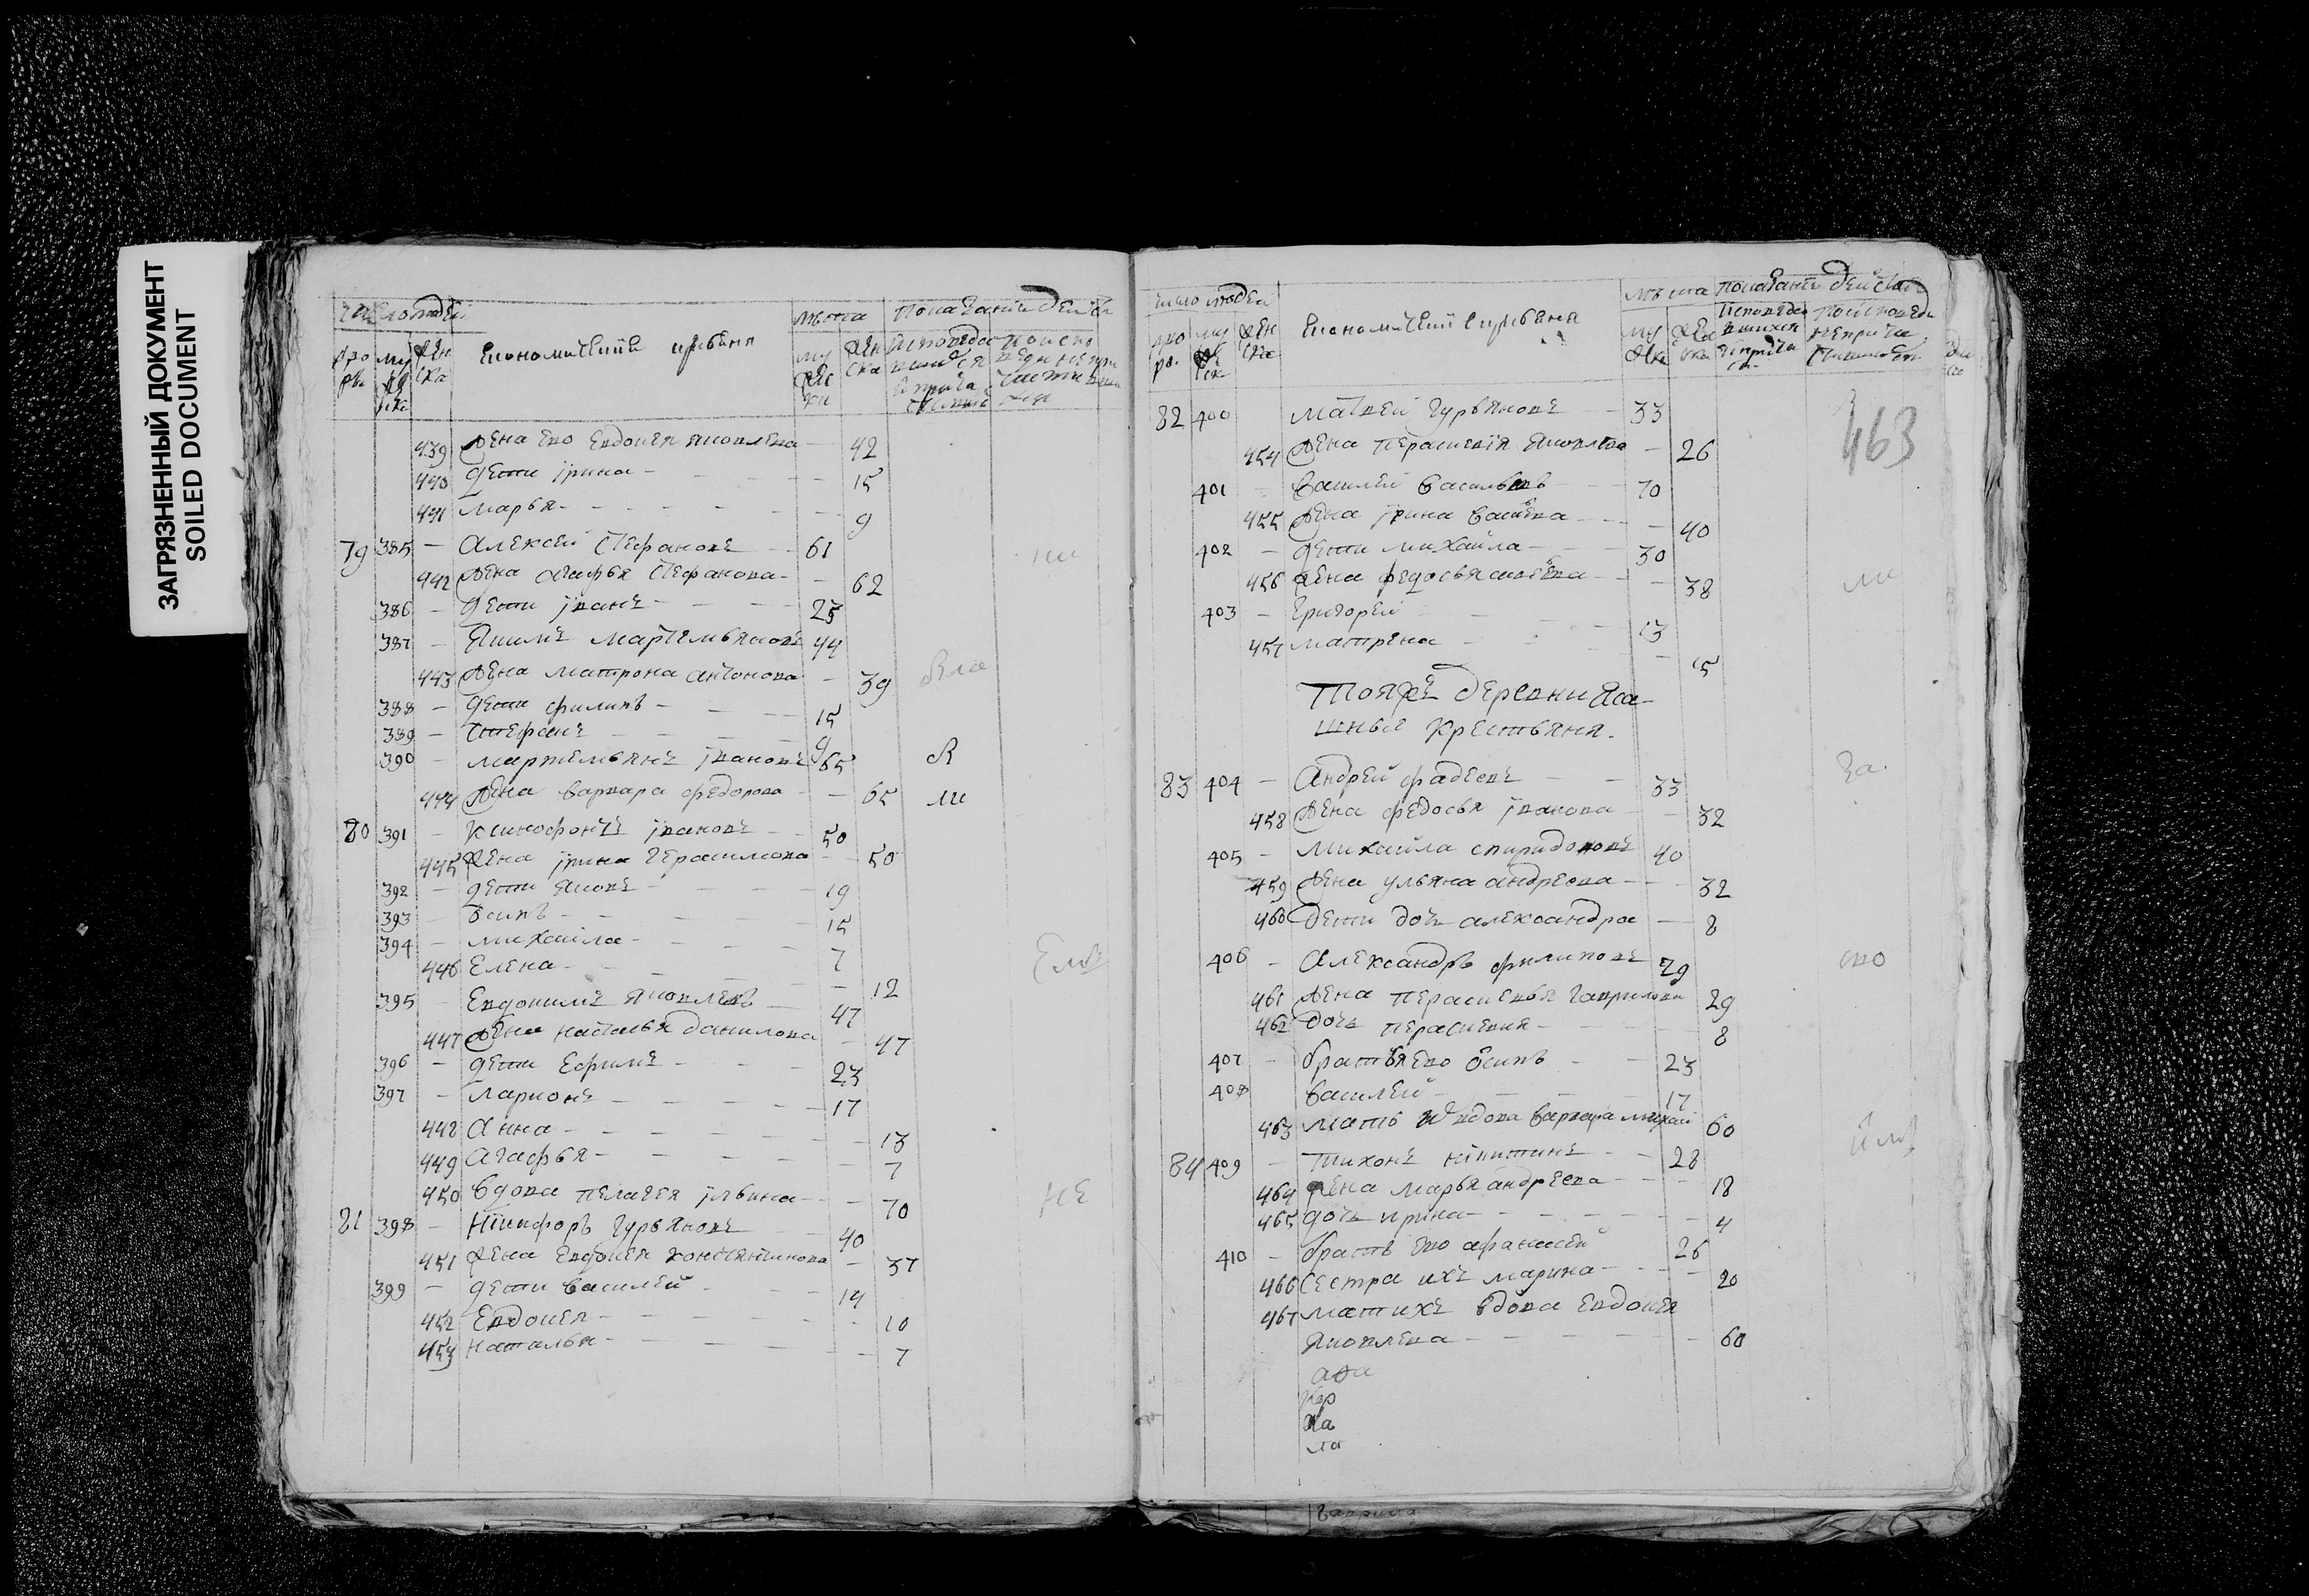 ЗАГРЯЗНЕННЫЙ ДОКУМЕНТ
SOILED DOCUMENT
число людей
економическия крестьяня
лѣта
показаніи действ
439 жена ево Евдокея яковлева 42
440 дети ірина 15
441 марья 9
79 385 Алексей Стефановъ 61
442 жена агафья Стефанова 62
386 дети іванъ 23
387 Якимъ мартемьяновъ 44
443 жена матрона антонова 39
388 дети филипъ 15
389 Стефанъ 9
390 мартемьянъ івановъ 65
444 жена варвара федорова 65
80 391 ксинофонтъ івановъ 50
445 жена ірина герасимова 50
392 дети яковъ 19
393 осипъ 15
394 михаила 7
446 Елена 12
395 Евдокимъ яковлевъ 47
447 жена наталья данилова 47
396 дети Ефимъ 23
397 ларионъ 17
448 Анна 13
449 агафья 7
450 вдова пелагея ільина 70
81 398 Никифоръ гурьяновъ 40
451 жена Евдокея констянтинова 37
399 дети василей 14
452 Евдокея 10
453 наталья 7
число людей
економическия крестьяня
лѣта
показаніи действ
463
82 400 матвей гурьяновъ 33
454 жена перасковія яковлева 26
401 василей васильевъ 70
455 жена ірина 40
402 дети михайла 30
456 жена федосья 38
403 григорей 13
457 матрена 15
тояже деревни яса
шныя крестьяня.
83 404 Андрей фадеевъ 33
458 жена федосья іванова 32
405 михайла спиридоновъ 40
459 жена ульяна андреева 32
460 дети дочь александра 8
406 александръ филиповъ 29
461 жена перасковья гаврилова 29
462 дочь перасковия 8
407 братья ево осипъ 23
408 василей 17
463 мать вдова варвара михай 60
84 409 тихонъ никитинъ 28
464 жена марья андреева 18
465 дочь ирина 4
410 братъ ево афанасей 26
466 сестра ихъ марина 20
467 мать ихъ вдова евдокея
яковлева 60